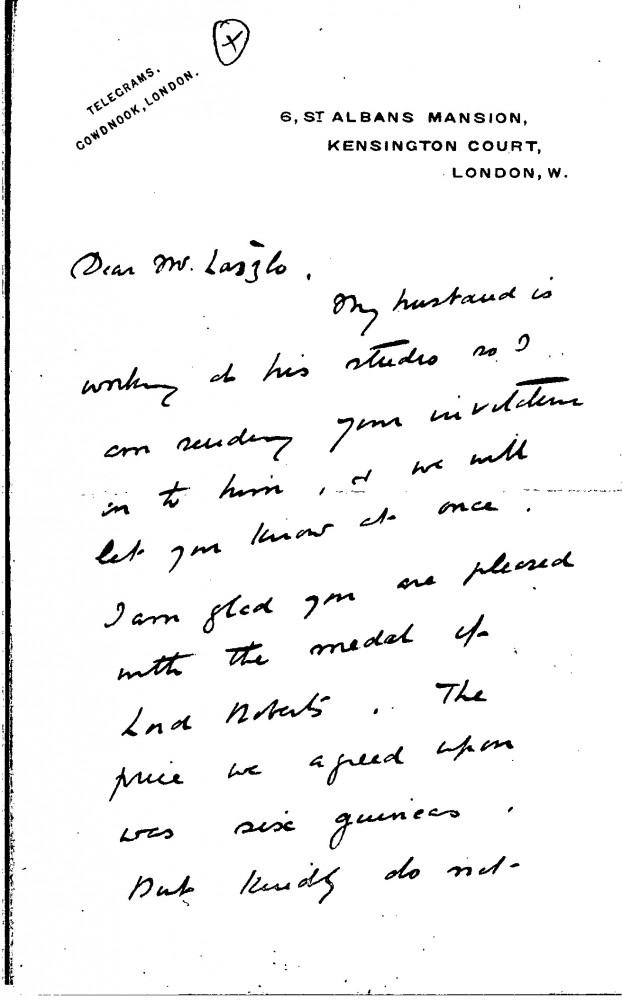 TELEGRAMS.
COWDNOOK, LONDON.
6, ST ALBANS MANSION,
KENSINGTON COURT,
LONDON, W.
Dear Mr. László.
My husband is
working at his studio so I
am sending your invitation
in to him, & we will
let you know at once.
I am glad you are pleased
with the medal of
Lord Roberts. The
price we agreed upon
was six guineas.
But kindly do not